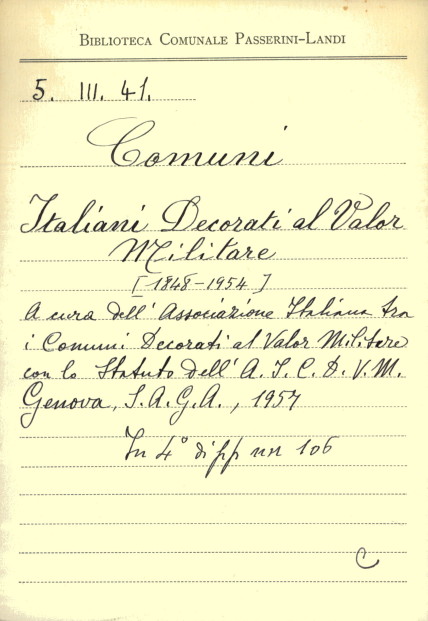 BIBLIOTECA COMUNALE PASSERINI-LANDI
5. III. 41.
Comuni
Italiani Decorati al Valor
Militare
[1848-1954]
A cura dell' Associazione Italiana tra
i Comuni Decorati al Valor Militare
con lo Statuto dell' A. I. C. D. V. M.
Genova, S.A.G.A., 1957
In 4° di pp nn 106
C